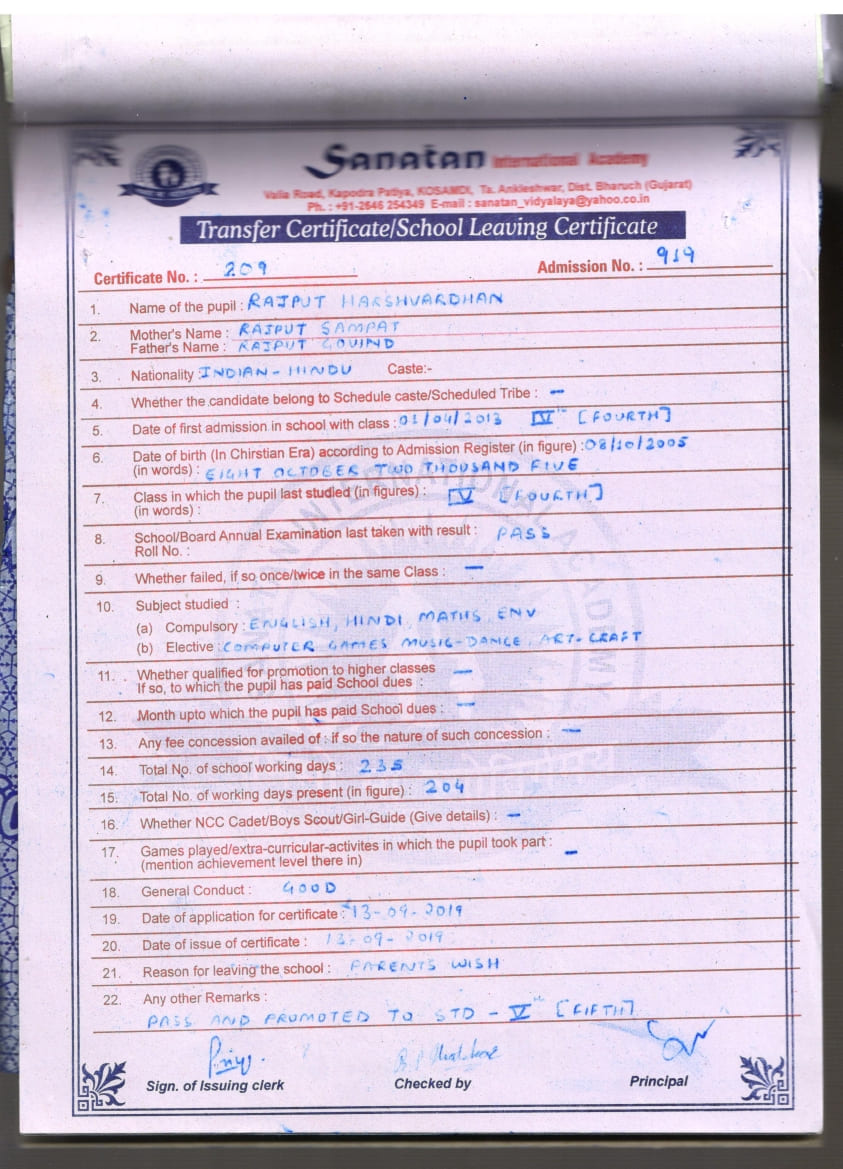 Sanatan International Academy
Valia Road, Kapodra Patiya, KOSAMDI, Ta. Ankleshwar, Dist. Bharuch (Gujarat)
Ph. : +91-2646 254349 E-mail : sanatan_vidyalaya@yahoo.co.in
Transfer Certificate/School Leaving Certificate
Certificate No. : 209 Admission No. : 919
1. Name of the pupil : RAJPUT HARSHVARDHAN
2. Mother's Name : RAJPUT SAMPAT
Father's Name : RAJPUT GOVIND
3. Nationality : INDIAN - HINDU Caste:-
4. Whether the candidate belong to Schedule caste/Scheduled Tribe : —
5. Date of first admission in school with class : 01/04/2013 IVth [FOURTH]
6. Date of birth (In Chirstian Era) according to Admission Register (in figure) : 08/10/2005
(in words) : EIGHT OCTOBER TWO THOUSAND FIVE
7. Class in which the pupil last studied (in figures) : IV [FOURTH]
(in words) :
8. School/Board Annual Examination last taken with result : PASS
Roll No. :
9. Whether failed, if so once/twice in the same Class : —
10. Subject studied :
(a) Compulsory : ENGLISH, HINDI, MATHS, ENV
(b) Elective : COMPUTER GAMES MUSIC-DANCE, ART-CRAFT
11. Whether qualified for promotion to higher classes —
If so, to which the pupil has paid School dues :
12. Month upto which the pupil has paid School dues : —
13. Any fee concession availed of : if so the nature of such concession : —
14. Total No. of school working days : 235
15. Total No. of working days present (in figure) : 204
16. Whether NCC Cadet/Boys Scout/Girl-Guide (Give details) : —
17. Games played/extra-curricular-activites in which the pupil took part : —
(mention achievement level there in)
18. General Conduct : GOOD
19. Date of application for certificate : 13-09-2019
20. Date of issue of certificate : 13-09-2019
21. Reason for leaving the school : PARENTS WISH
22. Any other Remarks :
PASS AND PROMOTED TO STD - Vth [FIFTH]
Sign. of Issuing clerk Checked by Principal